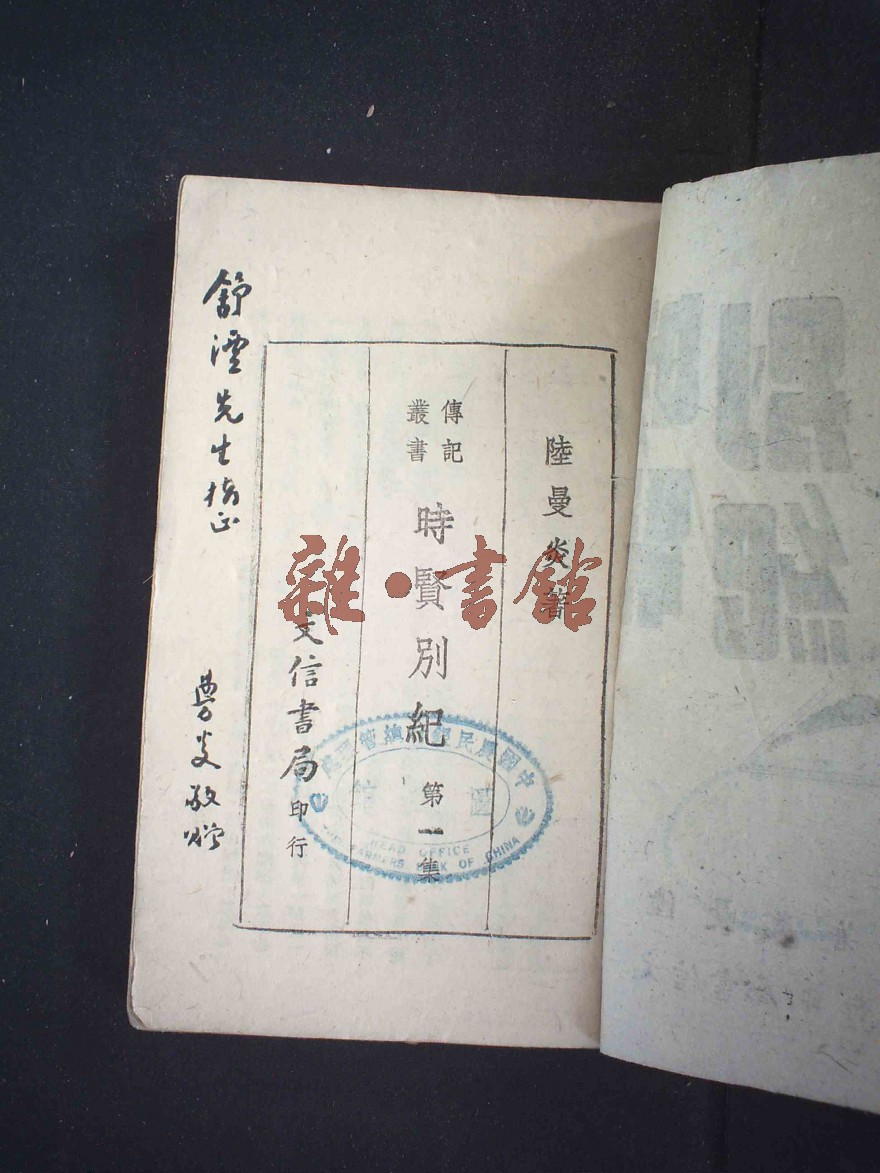 陸曼炎著
傳記
叢書
時賢別紀
第一集
文信書局
印行
舒澐先生指正
曼炎敬贈
中國農民銀行總管理處
HEAD OFFICE
THE FARMERS BANK OF CHINA
雜·書館